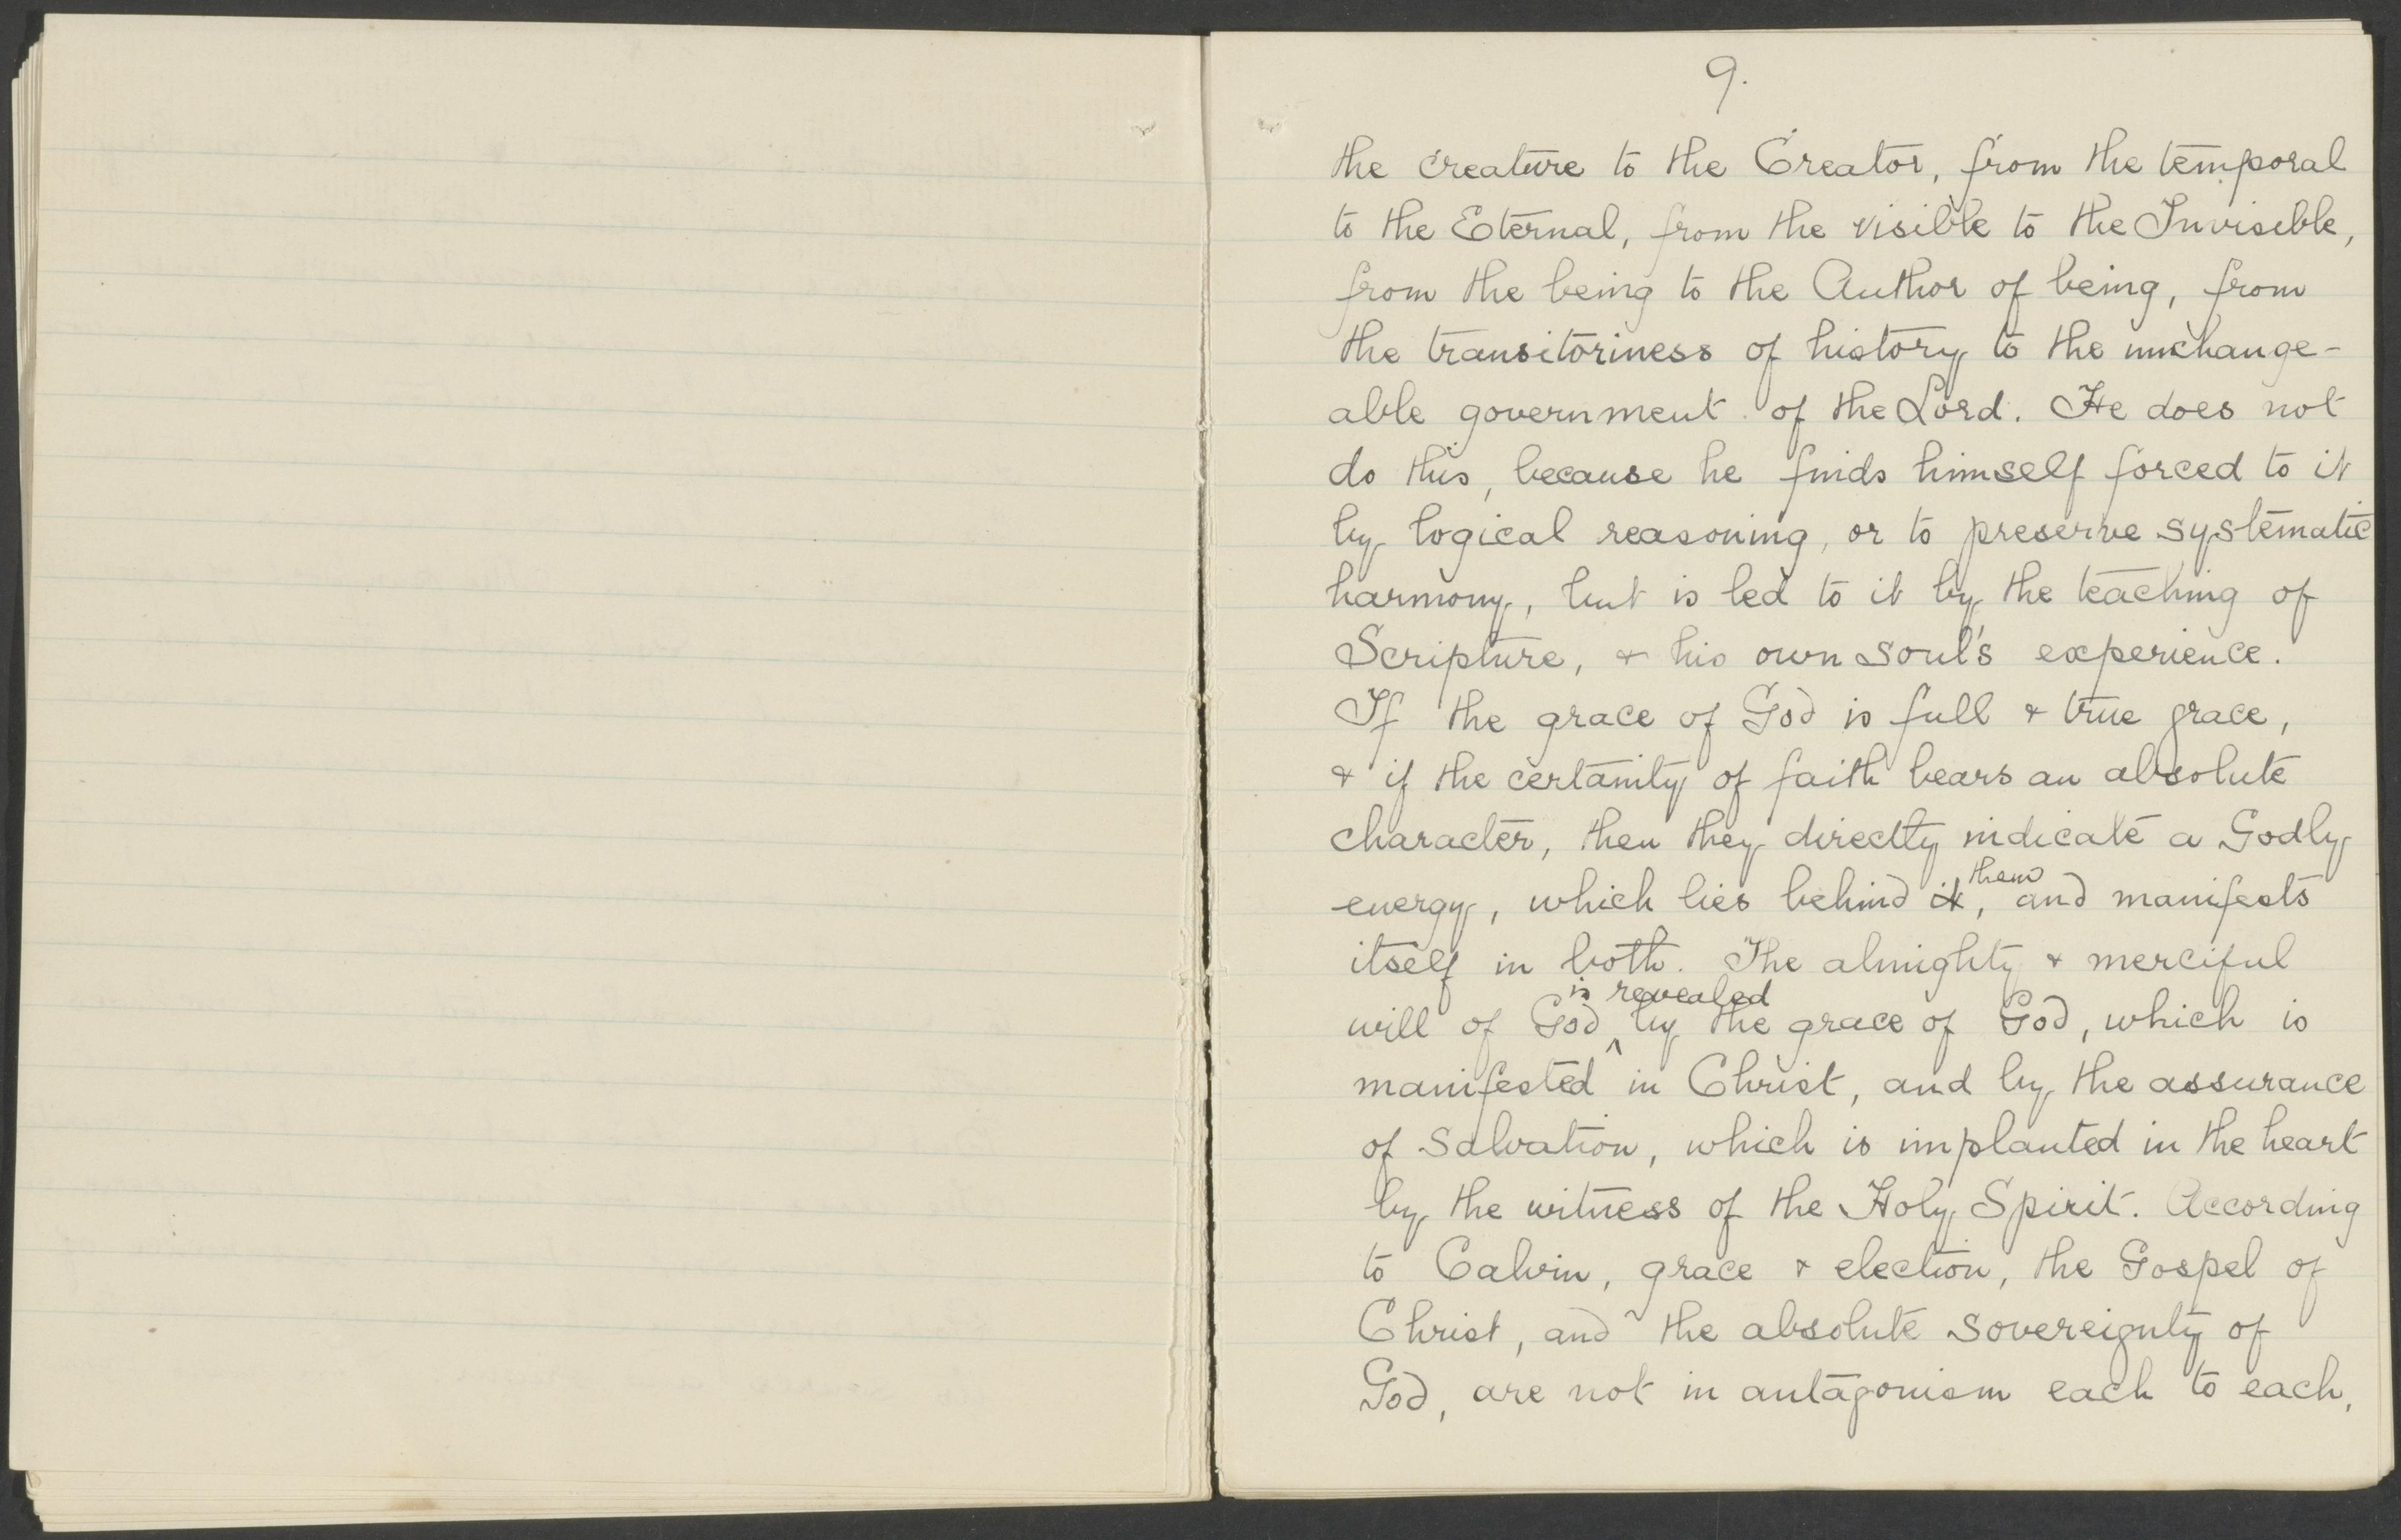 9.
the creature to the Creator, from the temporal
to the Eternal, from the visible to the Invisible,
from the being to the Author of being, from
the transitoriness of history to the unchange-
able government of the Lord. He does not
do this, because he finds himself forced to it
by logical reasoning, or to preserve systematic
harmony, but is led to it by the teaching of
Scripture, & his own soul's experience.
If the grace of God is full & true grace,
& if the certanity of faith bears an absolute
character, then they directly indicate a Godly
them
energy, which lies behind it, and manifests
itself in both. The almighty & merciful
is revealed
will of God ^ by the grace of God, which is
manifested in Christ, and by the assurance
of salvation, which is implanted in the heart
by the witness of the Holy Spirit. According
to Calvin, grace & election, the Gospel of
Christ, and the absolute sovereignty of
God, are not in antagonism each to each,